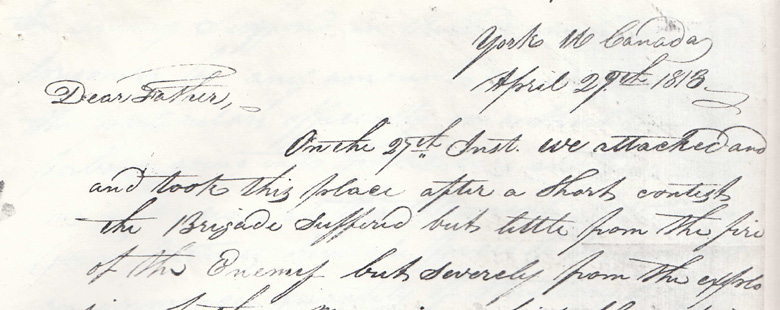 York U Canada
April 29th 1813
Dear Father,
On the 27th Inst. we attacked and
and took this place after a short contest
the Brigade suffered but little from the fire
of the Enemy but severely from the explo